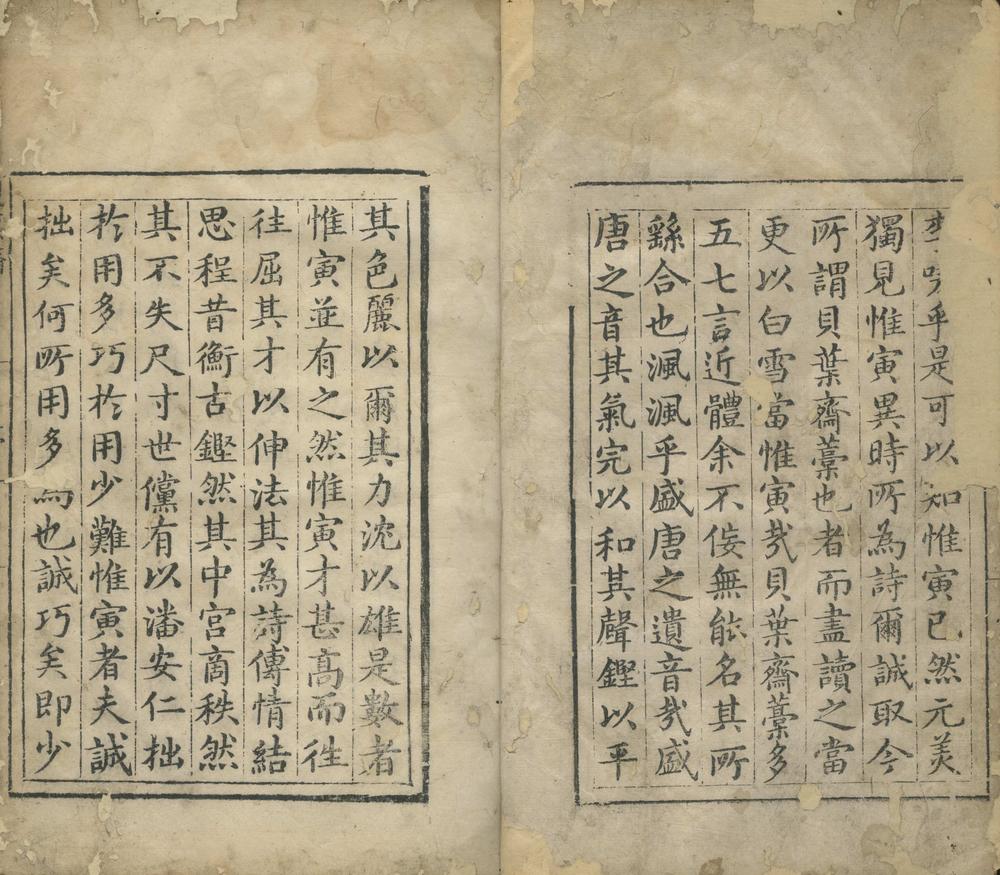 乎是可以知惟寅已然元美
獨見惟寅異時所為詩爾誠取今
所謂貝葉齋藁也者而盡讀之當
更以白雪當惟寅㢤貝葉齋藁多
五七言近體余不佞無能名其所
繇合也渢渢乎盛唐之遺音㢤盛
唐之音其氣完以和其聲鏗以平
其色麗以爾其力沈以雄是數者
惟寅並有之然惟寅才甚高而徃
徃屈其才以伸法其為詩傳情結
思程昔衡古鏗然其中宮商秩然
其不失尺寸世儻有以潘安仁拙
於用多巧於用少難惟寅者夫誠
拙矣何所用多為也誠巧矣即少